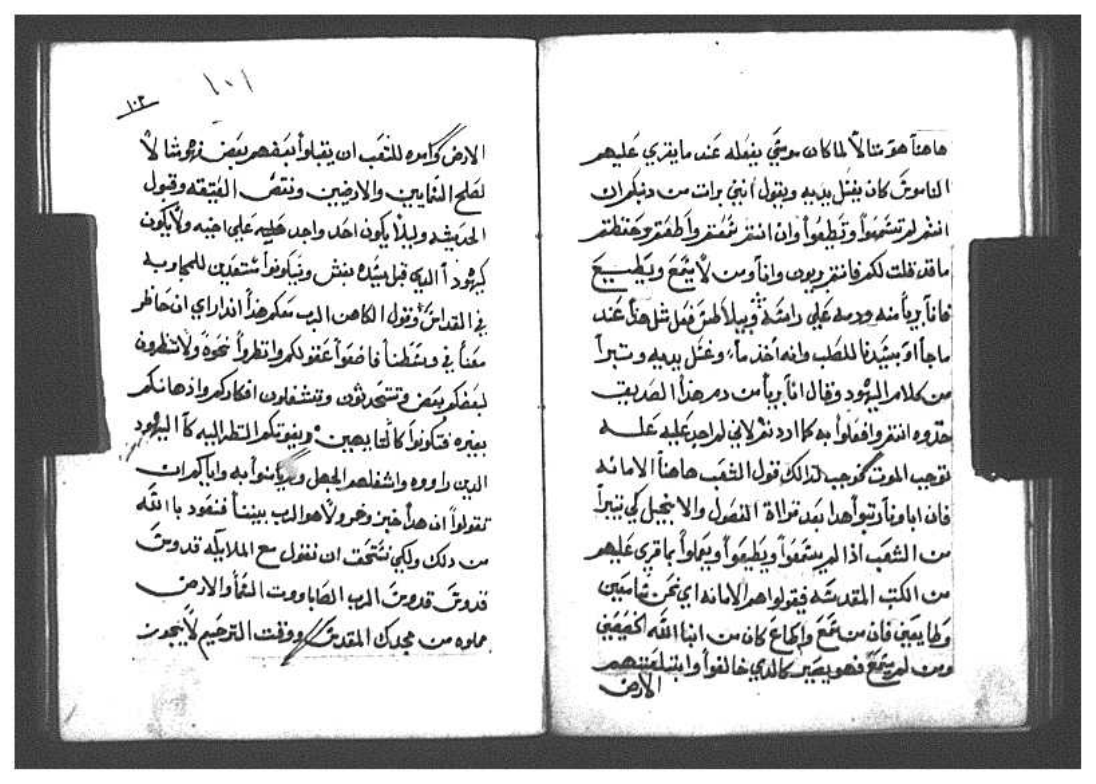 هاهنا هو مثالاً لما كان موسي يفعله عند ما يقري عليهم
الناموس كان يغسل يديه ويقول انني برات من دمكم ان
انتم لم تسمعوا وتطيعوا وان انتم سمعتم واطعتم وحفظتم
ما قد قلت لكم فانتم بريون وانا ومن لا يسمع ويطيع
فانا برياً منه ودمه علي راسه وبيلاطس فعل مثل هذا عند
ما جاا سيدنا للصلب وانه اخذ ماء وغسل يديه وتبرا
من كلام اليهود وقال انا برياً من دم هذا الصديق
خذوه انتم وافعلوا به كما اردتم لاني لم اجد عليه علـه
توجب الموت كموجب لذالك قول الشعب هاهنا الامانه
فان اباونا رتبوا هدا بعد قرااة الفصول والانجيل كي تبرا
من الشعب اذا لم يسمعوا ويطيعوا ويعملوا بما قري عليهم
من الكتب المقدسه فيقولوا هم الامانه اي نحن سامعين
وطايعين فان من سمع واطاع كان من ابنا الله الحقيقين
ومن لم يسمع فهو يصير كالدي خالفوا وابتلعتهم
الارض
١٠١
١٠٢
الارض وامره للشعب ان يقبلوا بعضهم بعض فهو مثالاً
لصلح السمايين والارضيين ونقض العتيقه وقبول
الحديثه وليلا يكون احد واجد عليه علي اخيه ولا يكون
كيهودا الدي قبل سيده بغش ويكونوا مستعدين للمحاربه
في القداس وقول الكاهن الرب معكم هذا انذار اي ان حاظر
معنا في وسطنا فاضعوا عقولكم وانظروا نحوه ولا تنظرون
لبعضكم بعض وتتحدثون وتنشغلون افكاركم واذهانكم
بغيره فتكونوا كالتايهين ويفوتكم النظر اليه كما اليهود
الدين راووه واشغلهم الجهل ولم يامنوا به واياكم ان
تقولوا ان هدا خبز وخمر ولا هو الرب بيننا فنعود باالله
من دلك ولكي نستحق ان نقول مع الملايكه قدوس
قدوس قدوس الرب الصاباووت السما والارض
مملوه من مجدك المقدس ووقت الترحيم لا يجوز